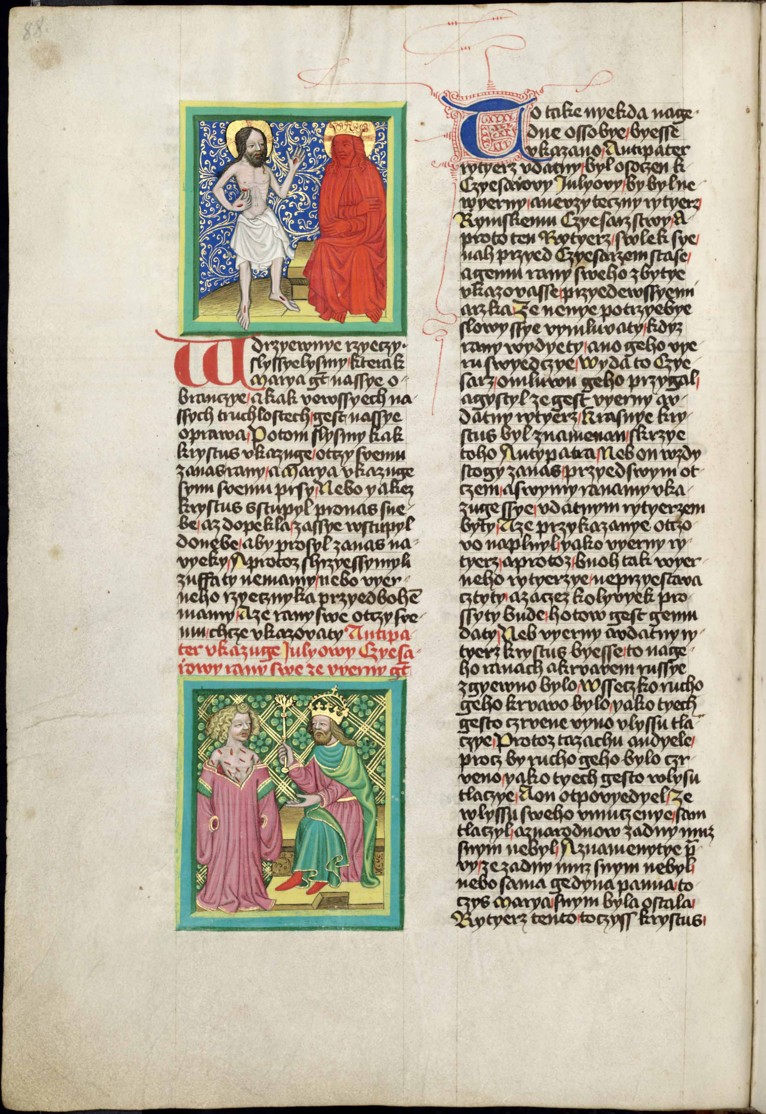 88.
W drzyewnye rzyeczy
slyssyelysmy kterak
Marya gt nassye o
branczye a kak vewssyech na
ssych truchlostech gest nassye
oprawa Potom slysmy kak
krystus vkazuge otczy svemu
zanas rany a Marya vkazuge
synu svemu prsy Nebo yakez
krystus sstupyl pro nas sue
be az dopekla zassye wstupyl
donebe aby prosyl zanas na
vyeky A protoz shrzyessymyli
zuffaty nemamy nebo vyer
neho rzyecznyka przyed bohē
mamy Aze rany swe otczy sve
mu chcze vkazovaty Antipa
ter vkazuge Julyowy Czyesa
rzowy rany swe ze vyerny gt
To take nyekda nage
dne ossobye byesse
vkazano Antipater
rytyerz vdatny byl osoczen k
Czyesarzowy Julyovy by byl ne
wyerny a nevzyteczny rytyerz
Rzymskemu Czyesarzstwy A
proto ten Rytyerz swlek sye
nah przyed Czyesarzem stase
a gemu rany sweho zbytye
vkazovasse przyedewssyemi
arzka Ze nenye potrzyebye
slowy ssye vymluvaty kdyz
rany wydyety ano geho vye
ru swyedczye Wyda to Czye
sarz omluwu geho przygal
agystyl ze gest vyerny a v
datny rytyerz Krasnye kry
stus byl znamenan skrzye
toho Antypatra Neb on wzdy
stogy zanas przyed swym ot
czem a swymy ranamy vka
zuge ssye vdatnym rytyerzem
byty Aze przykazanye otczo
vo naplnyl yako vyerny ry
tyerz a protoz buoh tak wyer
neho rytyerzye neprzyestava
cztyty azaczez kolyvyek pro
ssyty bude hotow gest gemu
daty Neb vyerny a vdatny ry
tyerz krystus byesse to nage
ho ranach a krvavem russye
zgyewno bylo Wsseczko rucho
geho krvavo bylo yako tyech
gesto czrvene vyno vlyssu tla
czye Protoz tazachu andyele
procz by rucho geho bylo czr
veno yako tyech gesto wlysu
tlaczye A on otpovyedyel Ze
wlyssu sweho vmuczenye sam
tlaczyl a znarodnow zadny muz
snym nebyl A znamenytye p̄
vy ze zadny muz snym nebyl
nebo sama gedyna panna to
czys Marya snym byla ostala
Rytyerz tento toczyss krystus